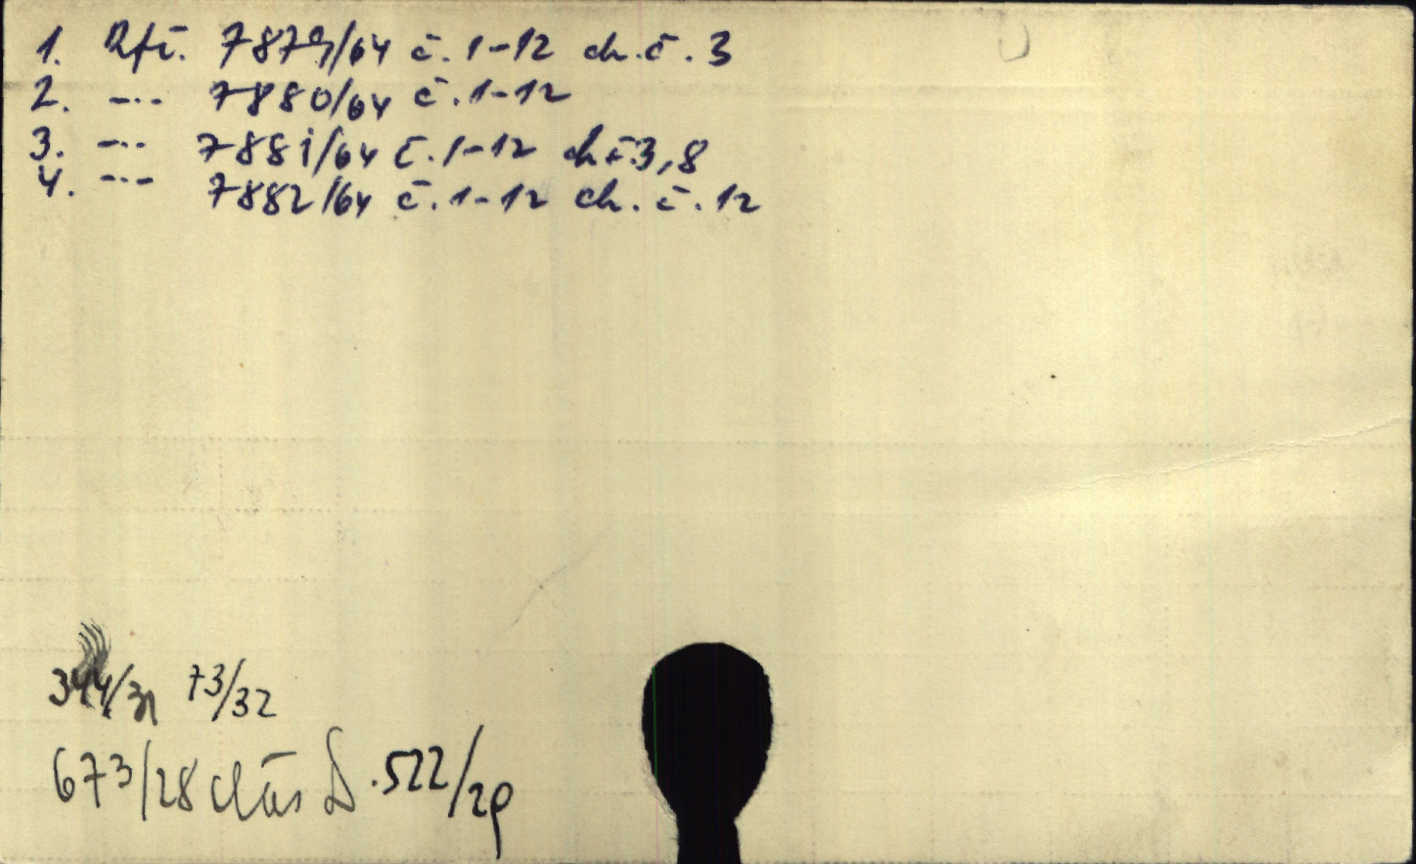 1. Rfč. 7879/64 č. 1-12 ch. č. 3
2. -·- 7880/64 č. 1-12
3. -·- 7881/64 č. 1-12 ch č 3, 8
4. -·- 7882/64 č. 1-12 ch. č. 12
344/31 73/32
673/28 D. 522/29